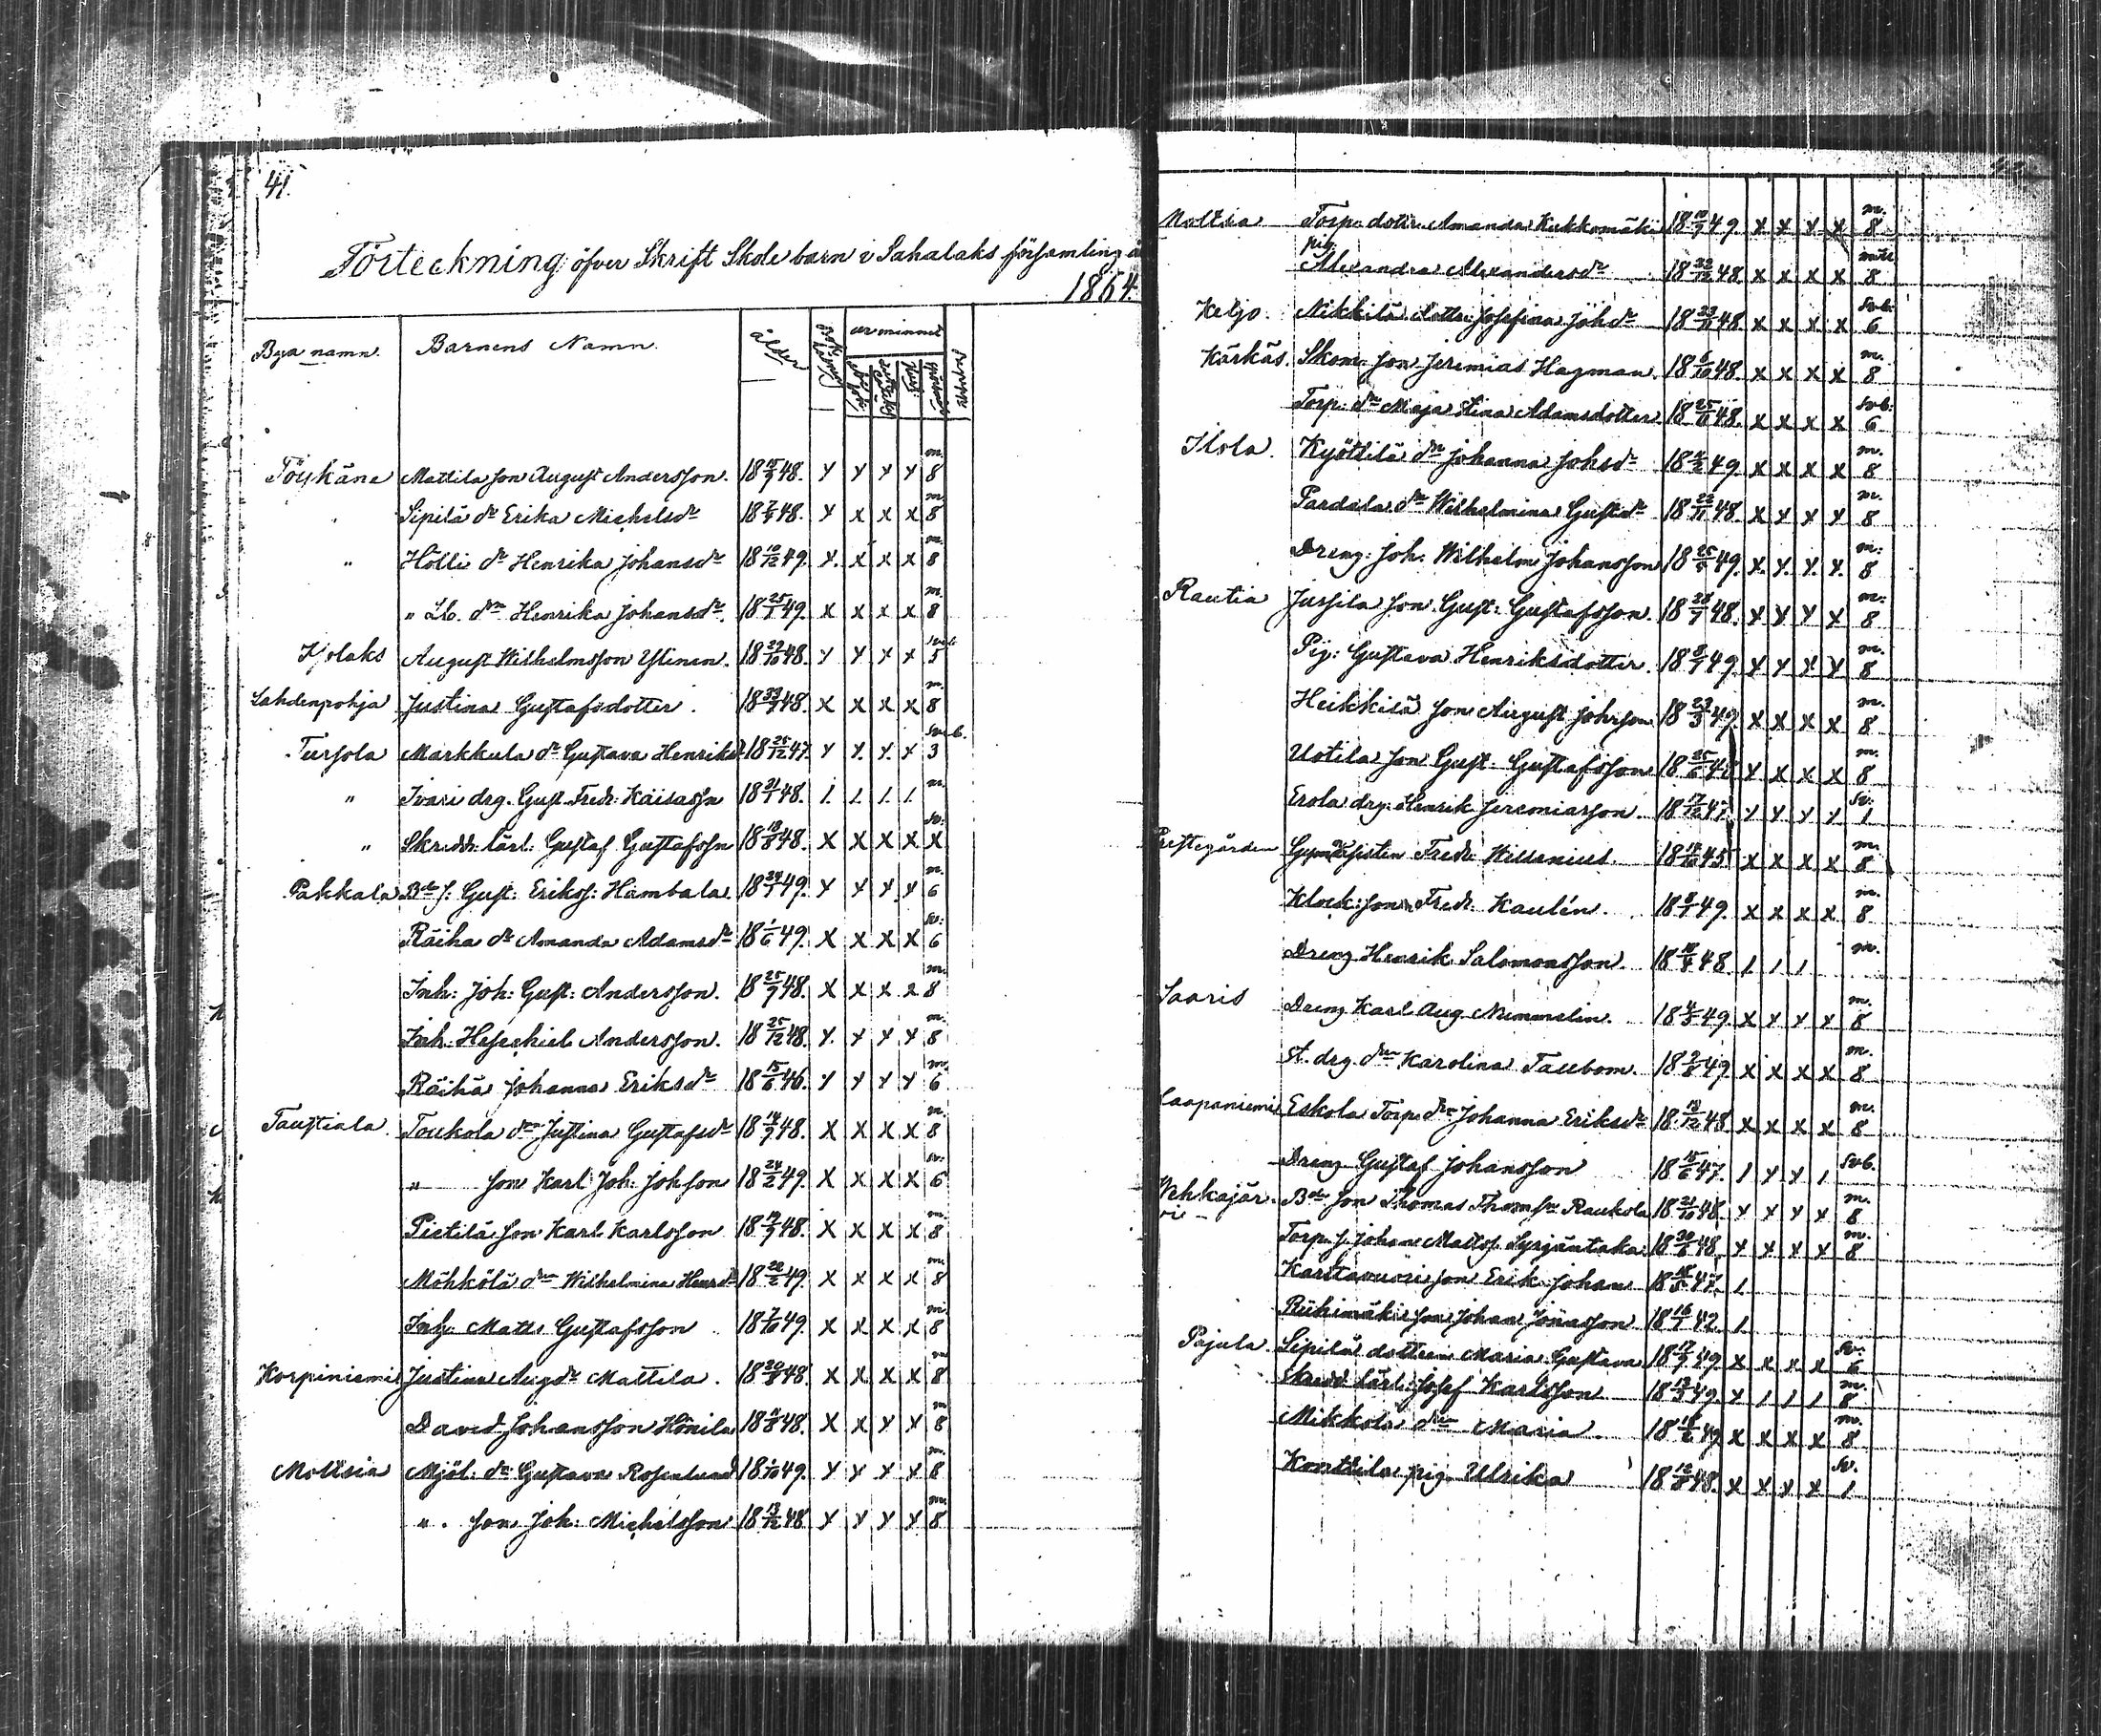 41.
Förteckning öfver Skrift Skole barn i Sahalaks församling
1864.
Bya namn. Barnens Namn. ålder ur minnet
Töyskäne Mattila son August Andersson. 18 48. x x x x m. 8
Sipilä dr Erika Michelsdr 18 48. x x x x m. 8
" Hölli dr Henrika Johansdr 18 10/12 49. x. x x x m. 8
" Lb. drn Henrika Johansdr. 18 25/1 49. x x x x m. 8
Kolaks August Wilhelmsson Ylinen. 18 29/10 48. x x x x 5
Lahdenpohja Justina Gustafsdotter. 18 48. x x x x m. 8
Tursola Markkula dr Gustava Henriksd 18 25/12 47. x x. x. x 3
" Ivari drg. Gust. Fredr. Käisasson 18 21/1 48. 1. 1. 1. 1. m.
" Skredd: lärl. Gustaf Gustafsson 18 18/8 48. x x x x x sv:
Pakkala Bde s. Gust: Eriks: Hambala 18 24/1 49. x x x x m. 6
Räiha dr Amanda Adamsdr 18 1/6 49. x x x x sv: 6
Inh: Joh: Gust: Andersson. 18 25/9 48. x x x 2 m. 8
Inh. Heseckiel Andersson. 18 25/12 48. x. x x x m. 8
Räihä Johanna Eriksdr 18 15/6 46. x x x x m. 6
Taustiala Toukola drn Justina Gustafsdr 18 14/9 48. x x x x m. 8
" son Karl Joh. Johsson 18 24/2 49. x x x x sv: 6
Pietilä son Karl Karlsson 18 19/9 48. x x x x m. 8
Möhkölä drn Wilhelmina Henrdr 18 22/2 49. x x x x m. 8
Inh. Matts Gustafsson 18 7/10 49. x x x x m. 8
Korpiniemi Justina Augdr Mattila. 18 48. x x x x m 8
David Johansson Hönila 18 48. x x x x m 8
Moltsia Mjöl: dr Gustava Rosenlund 18 1/10 49. x x x x m. 8
". son Joh: Michelsson 18 13/12 48 x x x x m. 8
Moltsia Torp. dotter Amanda Kukkomäki 18 49. x x x x m. 8
pig. Alexandra Alexandersdr 18 22/12 48. x x x x 8
Keljo. Nikkilä dotter Josefina Johdr 18 48 x x x x svb. 6
Kärkäs. Skom. son Jeremias Hagman. 18 6/10 48. x x x x m. 8
Torp: dr Maja Stina Adamsdotter 18 25/11 48. x x x x svb. 6
Ilola. Kyöttilä drn Johanna Johsdr 18 49. x x x x m. 8
Pardala drn Wilhelmina Gustdr 18 22/11 48. x x x x m. 8
Dreng: Joh. Wilhelm Johansson 18 49. x. x. x. x. m: 8
Rautia Jussila son Gust: Gustafsson. 18 28/7 48. x x x x m: 8
Pig: Gustava Henriksdotter. 18 8/1 49. x x x x m. 8
Heikkilä son August Johsson 18 23/3 49. x x x x m. 8
Uotila son Gust. Gustafsson 18 25/6 48 x x x x m. 8
Erola drg. Henrik Jeremiasson. 18 17/12 47. x x x x sv: 1
Prestegården Fredr. Willenius. 18 45 x x x x m. 8
Klock: son Fredr. Kaulén. 18 8/1 49. x x x x m. 8
Dreng Henrik Salomonsson. 18 48 1 1 1 m.
Saaris Dreng Karl Aug. Nummelin. 18 4/3 49 x x x x m. 8
st. drg. drn Karolina Taubom 18 49 x x x x m. 8
Saapaniemi Eskola Torp. drn Johanna Eriksdr 18 48 x x x x m. 8
Dreng Gustaf Johansson 18 15/6 47. 1 x x 1 svb.
Wehkajär- Bde son Thomas Thomsson Raukola 18 21/10 48. x x x x m. 8
vi - Torp. s. Johan Matts. Syrjäntaka 18 30/6 48. x x x x m. 8
Karitavuori son Erik Johan 18 47. 1.
Riihimäki son Johan Jönasson 18 16/1 42. 1.
Pajula. Sipilä dottren Maria Gustava 18 17/9 49 x x x x sv. 6
Skredd. lärl: Josef Karlsson 18 13/3 49. x 1 1 1 m. 8
Mikkola drn Maria. 18 49 x x x x m. 8
Konttila pig. Ulrika 18 48. x x x x sv. 1